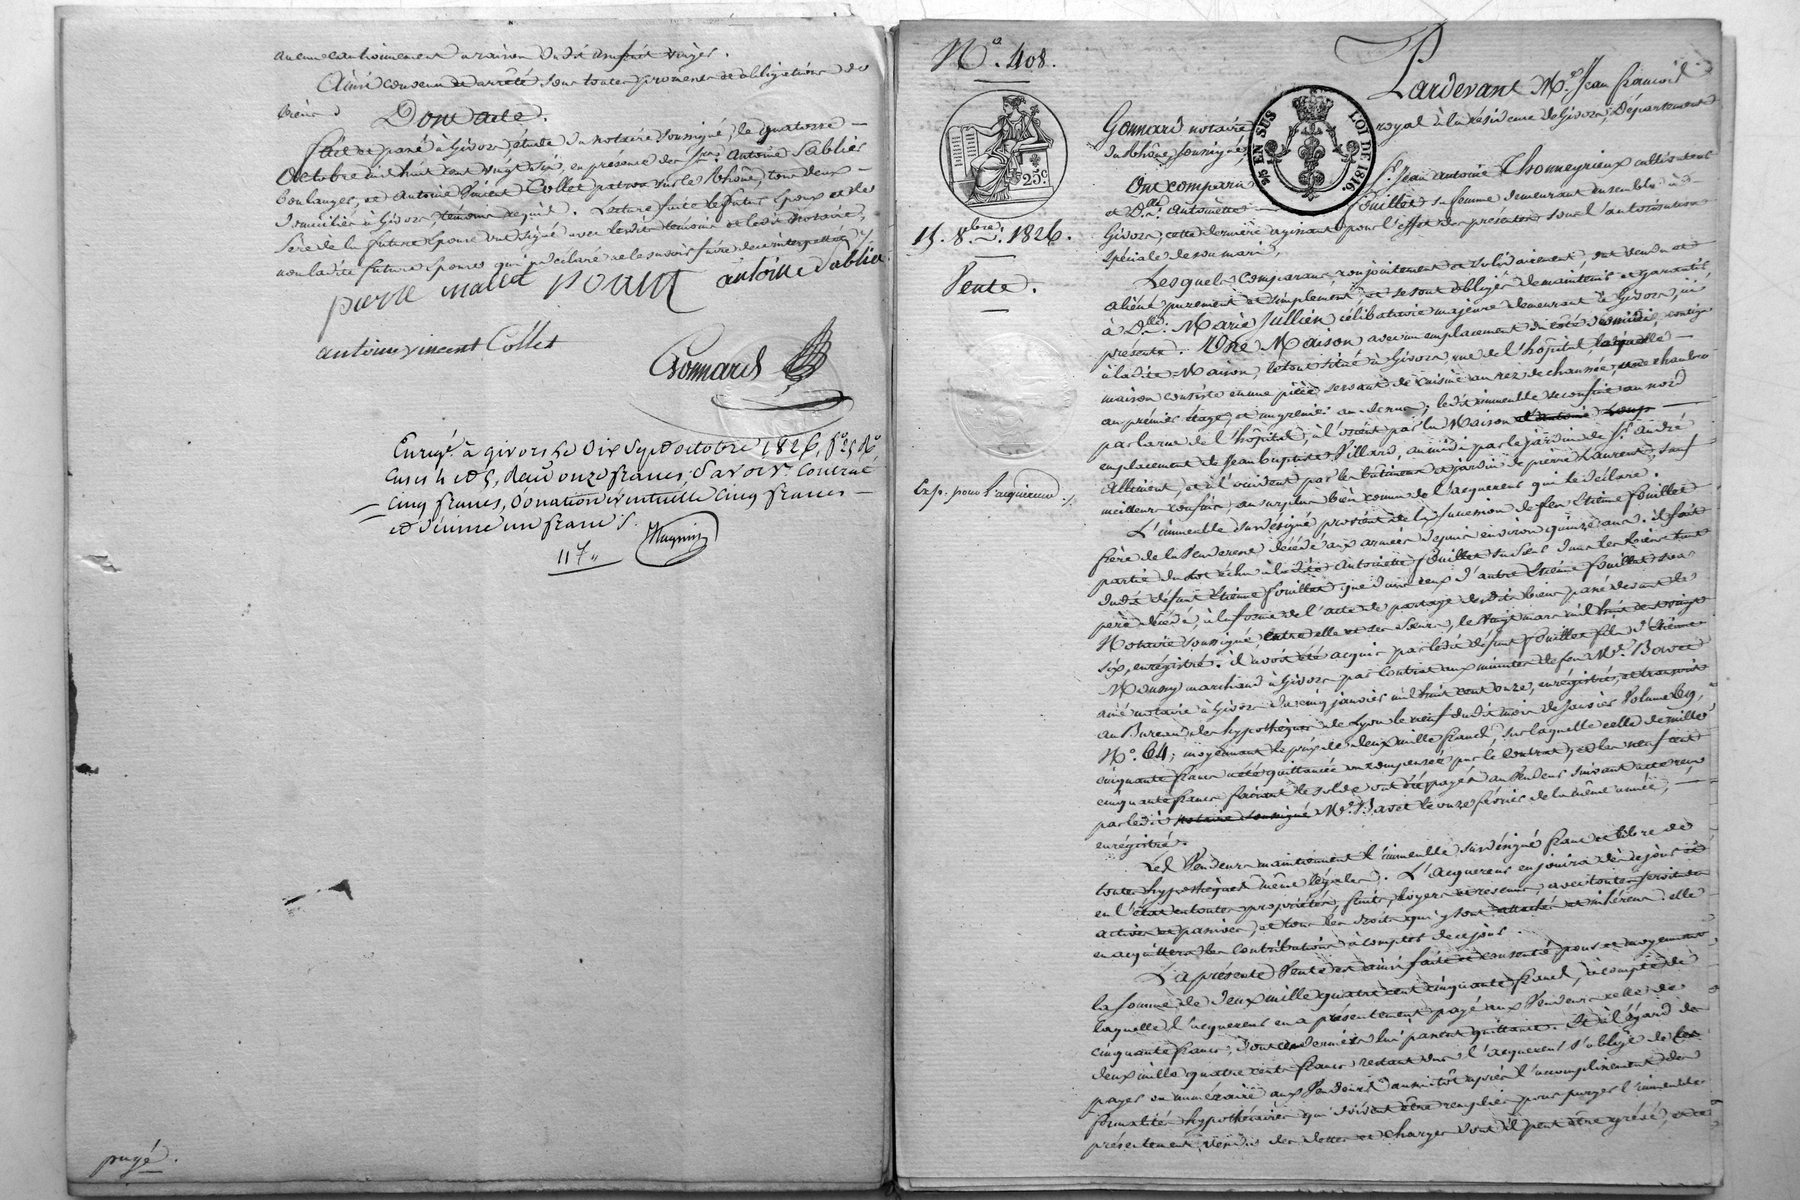 aucun cautionnement à raison dudit
Ainsi convenu et arrêté sous toutes promesses et obligations de
biens
Dont acte.
fait et passé à Givors, étude du notaire soussigné, le quatorze
Octobre mil huit cent vingt six, en présence des Srs Antoine Sablier
boulanger, et Antoine Vincent Collet patron sur le Rhône, tous deux
domiciliés à Givors, témoins requis. Lecture faite le futur époux et le
père de la future épouse ont signé avec lesdits témoins et ledit Notaire,
non ladite future épouse qui a déclaré ne le savoir faire de ce interpellée
antoine Sablier
pierre
antoine vincent Collet
Gonnard
Enregé à givors le Dix Sept octobre 1826, fo 25 Ro
Cases 4 et 5, Reçu onze francs, Savoir Contrat
Cinq francs, Donation éventuelle Cinq francs
et Décime un franc
11 7
payé.
No. 408.
25c
EN SUS LOI DE 1816.
15. 8bre. 1826.
Vente.
Exp. pour l'acquéreur
Pardevant Me. Jean françois
Gonnard notaire royal à la résidence de Givors, Département
du Rhône, soussigné,
Ont comparu Sr. Jean Antoine Thonneyrieux cultivateur
et Dlle. Antoinette fouillet sa femme demeurant ensemble à
Givors, cette dernière agissant pour l'effet des présentes sous l'autorisation
spéciale de son mari,
Lesquels comparans conjointement et solidairement, ont vendu et
aliéné purement et simplement, et se sont obligés de maintenir et garantir,
à Dlle. Marie Jullien célibataire majeure demeurant à Givors, ici
présente. Une Maison avec un emplacement du côté du midi, contigu
à ladite Maison, le tout situé à Givors, rue de l'hôpital, laquelle
maison consiste en une pièce servant de cuisine au rez de chaussée, une chambre
au premier étage, et un grenier au-dessus; ledit immeuble se confine au nord
par la rue de l'hôpital, à l'orient par la Maison
emplacement de Jean Baptiste Villard, au midi par le jardin de Sr. André
Alliment, et à l'occident par les bâtimens et jardin de pierre Laurent, sauf
meilleurs confins, au surplus bien connu de l'acquéreur qui le déclare.
L'immeuble susdésigné provient de la succession de feu Etienne fouillet
frère de la Venderesse décédé aux armées depuis environ quinze ans. il fait
partie du lot échu à ladite Antoinette fouillet, tant dans les biens
dudit défunt Etienne fouillet, que dans ceux d'autre Etienne fouillet son
père décédé, à la forme de l'acte de partage desdits biens passé devant le
Notaire soussigné, entre elle et ses sœurs, le vingt mars mil huit cent vingt
six, enregistré. il avoit été acquis par ledit défunt fouillet fils d'Etienne
marchand à Givors par contrat aux minutes de feu Me.
ainé notaire à Givors du cinq janvier mil huit cent onze, enregistré, et transcrit
au Bureau des hypothèques de Lyon le neuf dudit mois de Janvier Volume 69,
No. 64, moyennant le prix de deux mille francs, sur laquelle celle de mille
cinquante francs a été quittancée ou compensée par le contrat; et les neuf cent
cinquante francs faisant le solde ont été payés au Vendeur suivant acte reçu
par ledit notaire soussigné Me. le onze février de la même année,
enregistré.
Les Vendeurs maintiennent l'immeuble susdésigné franc et libre de
toutes hypothèques même légales. L'acquéreur en jouira dès ce jour et
en l'état en toutes propriétés, fruits, loyers et revenus, avec toutes servitudes
actives et passives, et tous les droits qui y sont attachés et inhérens: elle
en acquittera les contributions à compter de ce jour.
La présente Vente est ainsi faite et consentie pour et moyennant
la somme de deux mille quatre cent cinquante francs, à compte de
laquelle l'acquéreur en a présentement payé aux Vendeurs celle de
cinquante francs, dont ces derniers lui passent quittance. Et à l'égard des
deux mille quatre cents francs restant dus l'acquéreur s'oblige de les
payer en numéraire aux Vendeurs aussitôt après l'accomplissement des
formalités hypothécaires qui doivent être remplies pour purger l'immeuble
présentement vendu des dettes et charges dont il peut être grévé, et ce